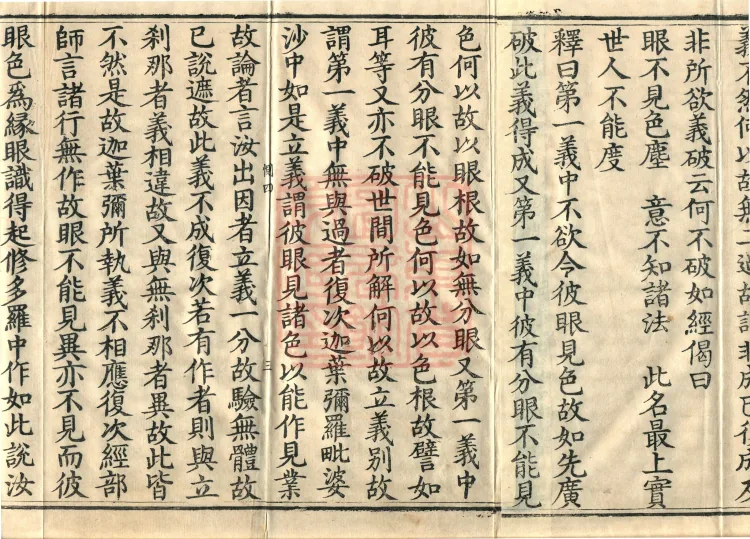 非所欲義破云何不破如經偈曰
眼不見色塵　意不知諸法　此名最上實
世人不能度
釋曰第一義中不欲令彼眼見色故如先廣
破此義得成又第一義中彼有分眼不能見
色何以故以眼根故如無分眼又第一義中
彼有分眼不能見色何以故以色根故譬如
耳等又亦不破世間所解何以故立義別故
謂第一義中無與過者復次迦葉彌羅毗婆
沙中如是立義謂彼眼見諸色以能作見業
故論者言汝出因者立義一分故驗無體故
已說遮故此義不成復次若有作者則與立
刹那者義相違故又與無刹那者異故此皆
不然是故迦葉彌所執義不相應復次經部
師言諸行無作故眼不能見異亦不見而彼
眼色爲緣眼識得起修多羅中作如此說汝
三